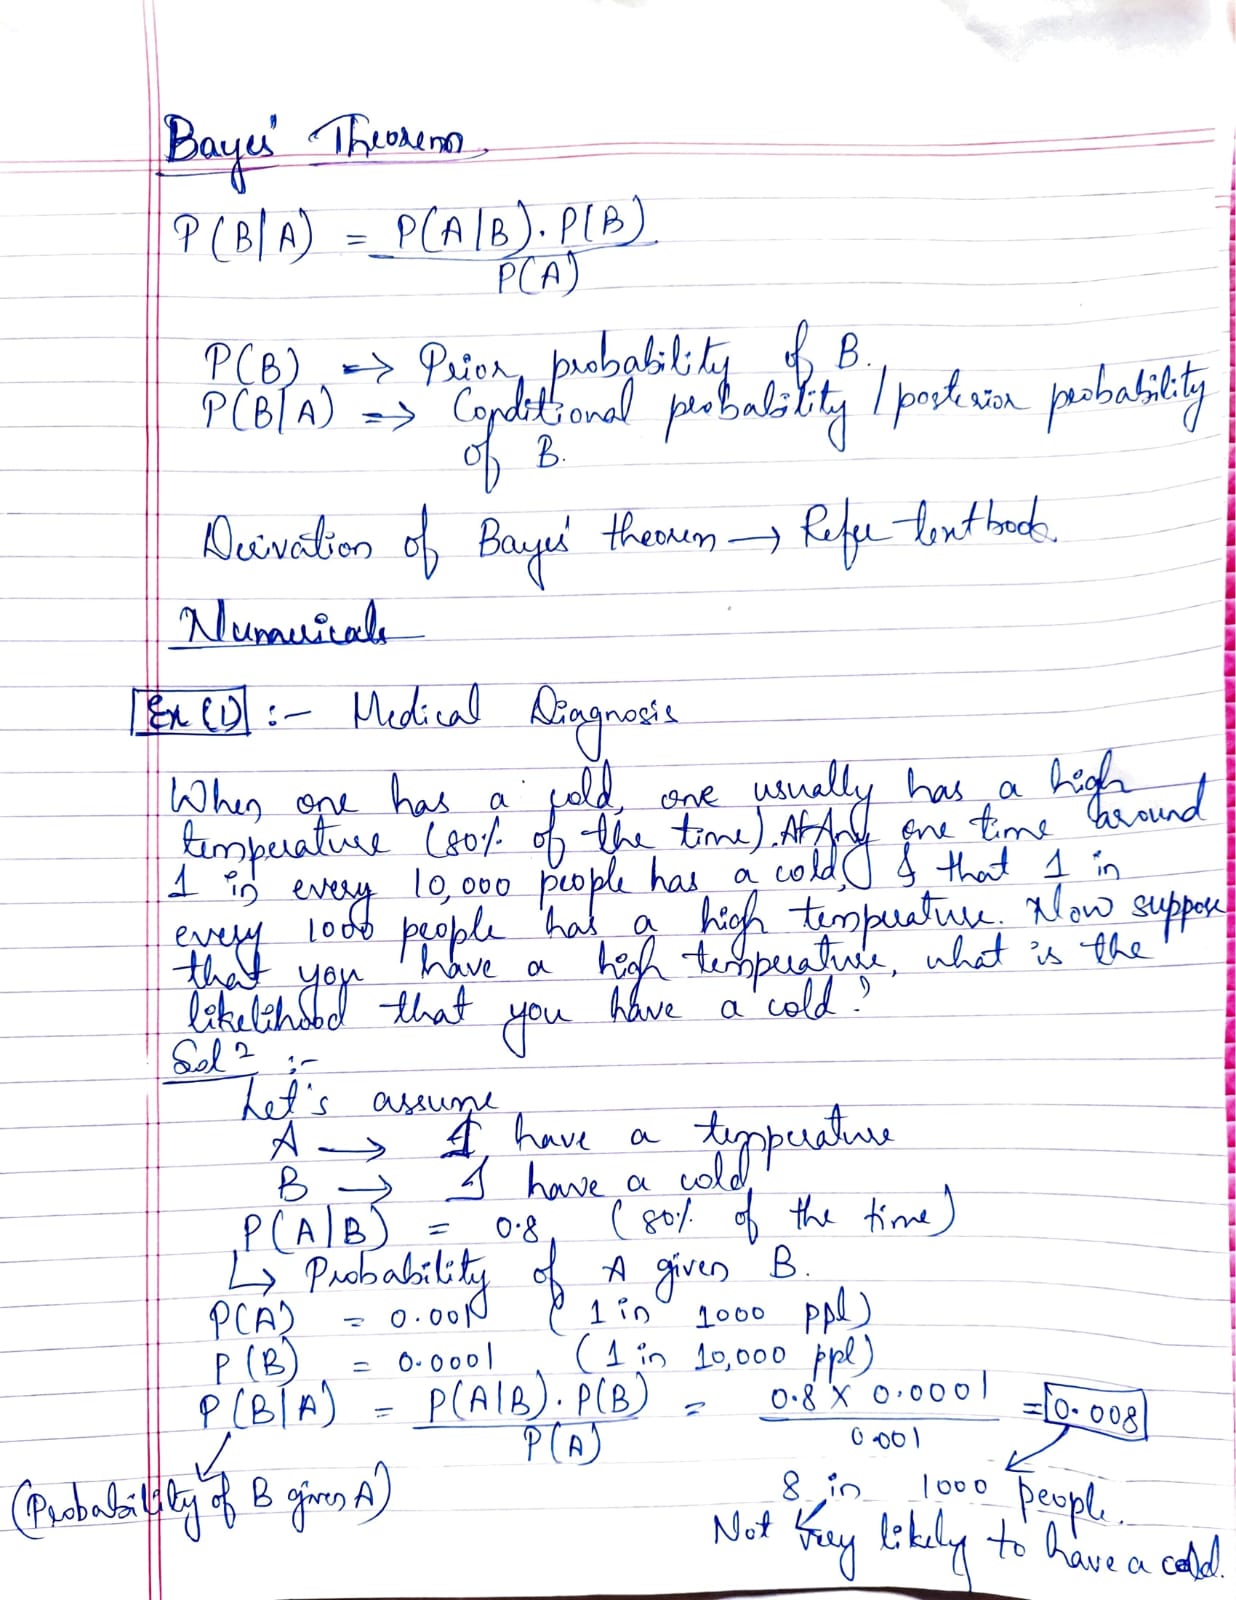 Bayes' Theorem
P(B|A) = P(A|B). P(B)
P(A)
P(B) => Prior probability of B.
P(B|A) => Conditional probability / posterior probability
of B.
Derivation of Bayes' theorem → Refer textbook
Numericals
Ex (1) :- Medical Diagnosis
When one has a cold, one usually has a high
temperature (80% of the time). At Any one time around
1 in every 10,000 people has a cold, & that 1 in
every 1000 people has a high temperature. Now suppose
that you have a high temperature, what is the
likelihood that you have a cold?
Sol^n :-
Let's assume
A → I have a temperature
B → I have a cold
P(A|B) = 0.8 (80% of the time)
↳ Probability of A given B.
P(A) = 0.001 (1 in 1000 ppl)
P(B) = 0.0001 (1 in 10,000 ppl)
P(B|A) = P(A|B). P(B) = 0.8 X 0.0001 = 0.008
P(A) 0.001
(Probability of B given A)
8 in 1000 people.
Not very likely to have a cold.